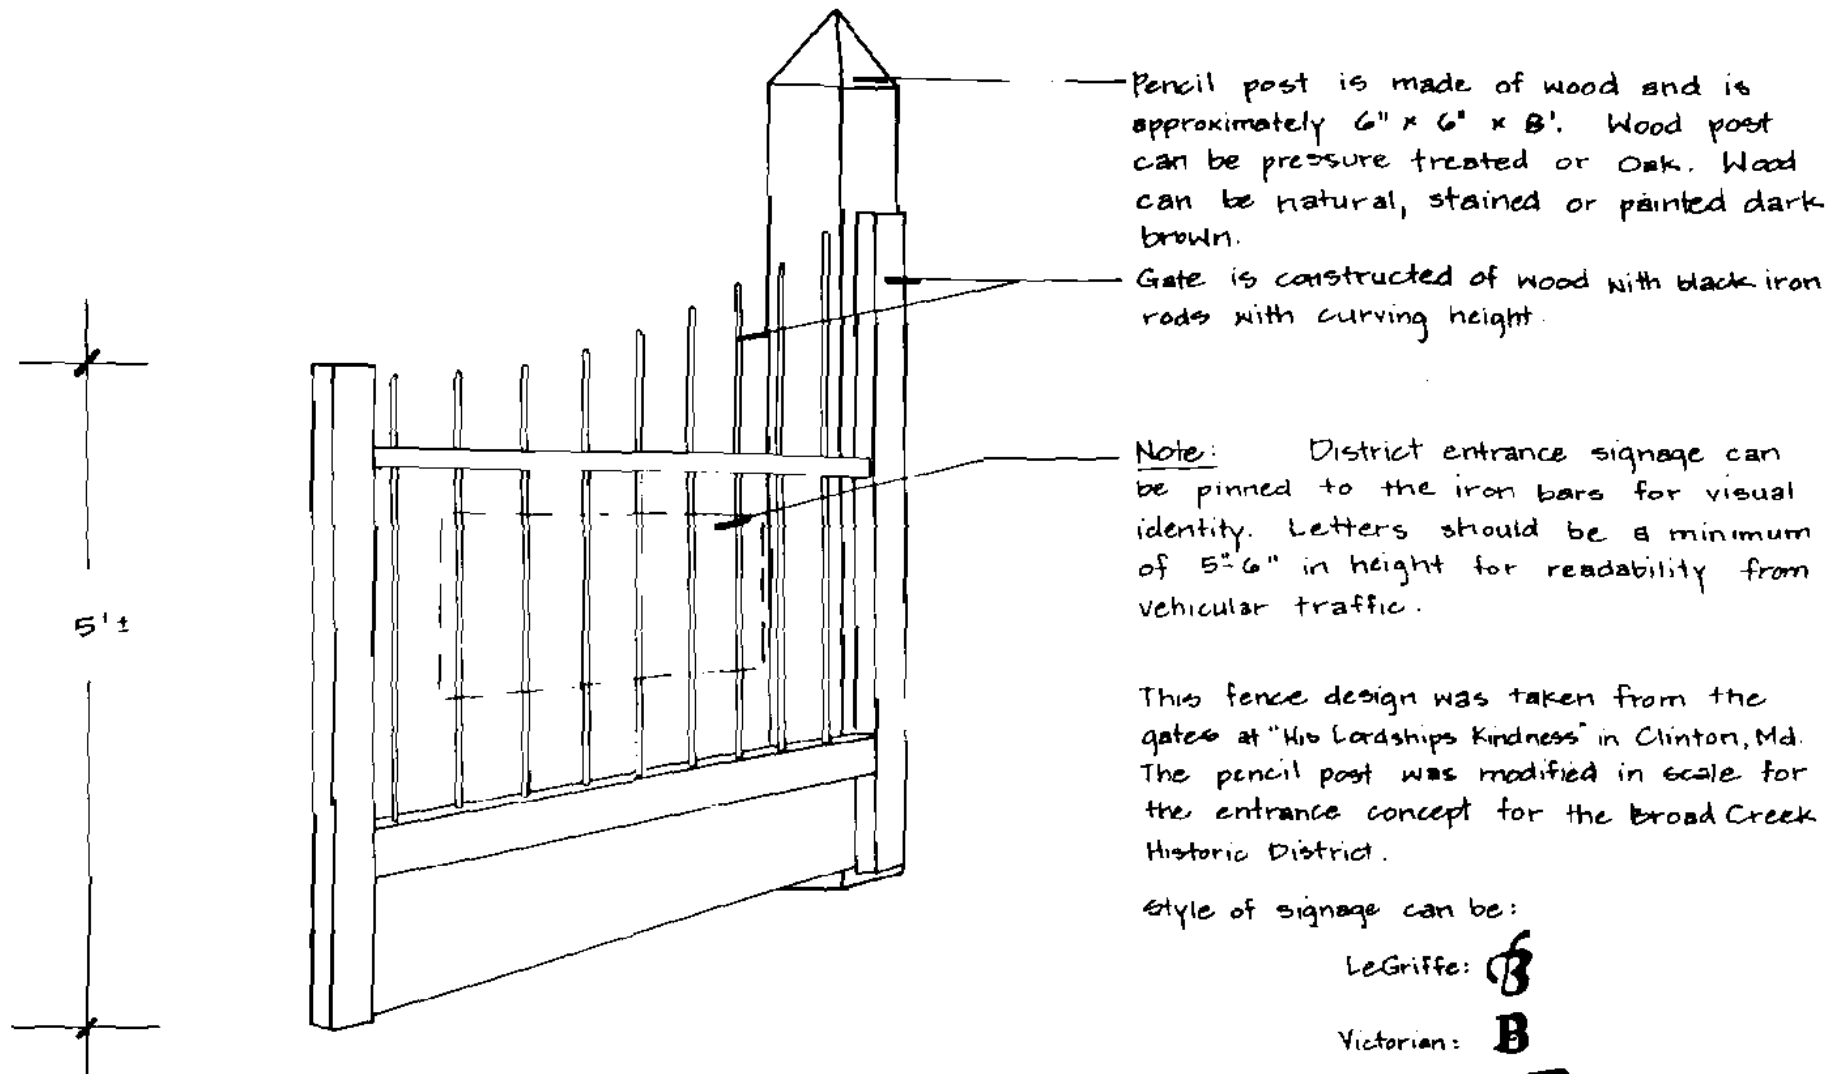 Pencil post is made of wood and is
approximately 6" x 6" x 8'. Wood post
can be pressure treated or Oak. Wood
can be natural, stained or painted dark
brown.
Gate is constructed of wood with black iron
rods with curving height.
Note: District entrance signage can
be pinned to the iron bars for visual
identity. Letters should be a minimum
of 5"-6" in height for readability from
vehicular traffic.
5'±
This fence design was taken from the
gates at "His Lordships Kindness" in Clinton, Md.
The pencil post was modified in scale for
the entrance concept for the Broad Creek
Historic District.
Style of signage can be:
LeGriffe: B
Victorian: B